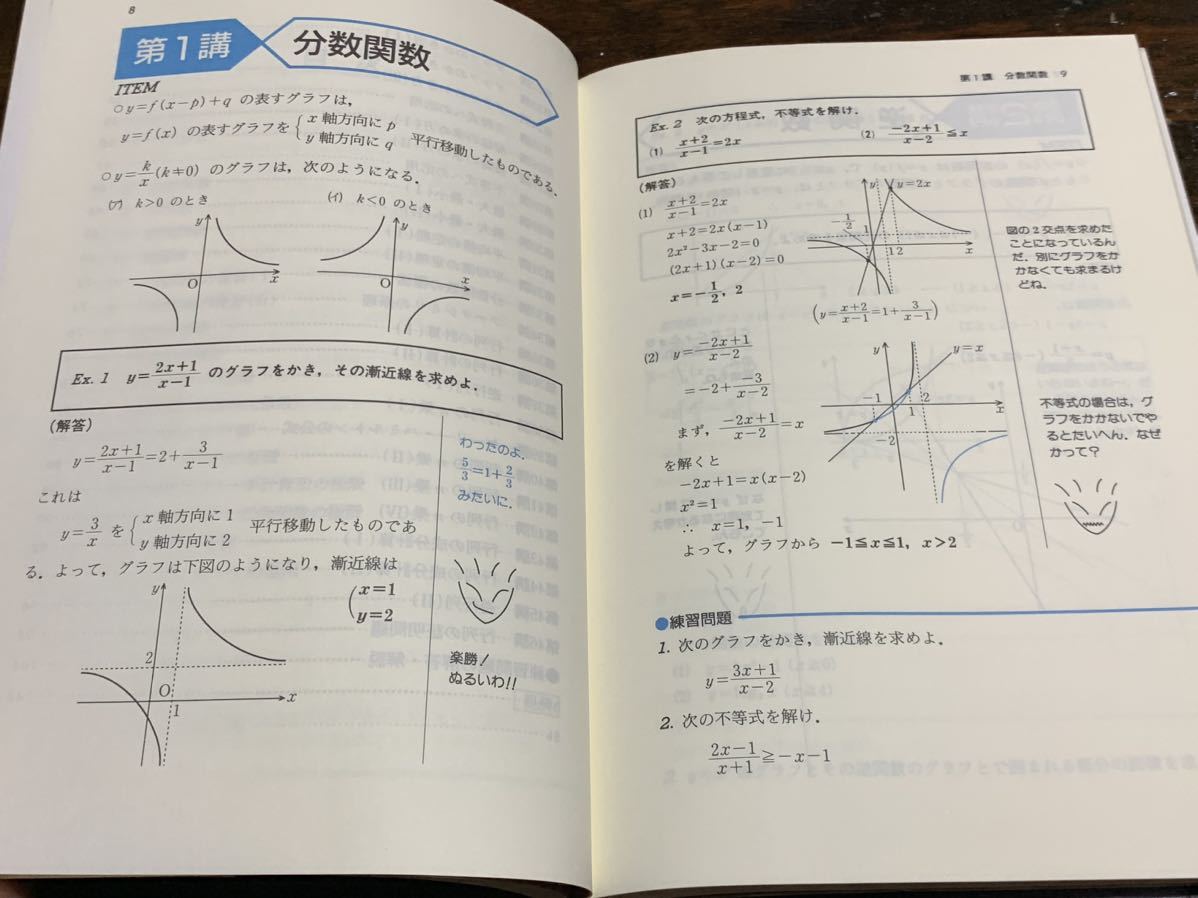 8
第1講 分数関数
ITEM
○y=f(x-p)+q の表すグラフは,
y=f(x) の表すグラフを{x 軸方向に p
y 軸方向に q 平行移動したものである.
○y=k/x(k≠0) のグラフは,次のようになる.
(ア) k>0 のとき (イ) k<0 のとき
y y
O x O x
Ex. 1 y=2x+1/x-1 のグラフをかき,その漸近線を求めよ.
(解答)
y=2x+1/x-1=2+3/x-1
わったのよ.
5/3=1+2/3
みたいに.
これは
y=3/x を{x 軸方向に 1
y 軸方向に 2 平行移動したものであ
る.よって,グラフは下図のようになり,漸近線は
(x=1
y=2)
y
2
O
1
x
楽勝!
ぬるいわ!!
第1講 分数関数 9
Ex. 2 次の方程式,不等式を解け.
(1) x+2/x-1=2x (2) -2x+1/x-2≦x
(解答)
(1) x+2/x-1=2x
x+2=2x(x-1)
2x²-3x-2=0
(2x+1)(x-2)=0
x=-1/2, 2
y y=2x
-1/2 1
1 2 x
(y=x+2/x-1=1+3/x-1)
図の2交点を求めた
ことになっているん
だ.別にグラフをか
かなくても求まるけ
どね.
(2) y=-2x+1/x-2
=-2+-3/x-2
まず,-2x+1/x-2=x
を解くと
-2x+1=x(x-2)
x²=1
∴ x=1, -1
よって,グラフから -1≦x≦1, x>2
y y=x
-1 2
1 x
-2
不等式の場合は,グ
ラフをかかないでや
るとたいへん.なぜ
かって?
●練習問題
1. 次のグラフをかき,漸近線を求めよ.
y=3x+1/x-2
2. 次の不等式を解け.
2x-1/x+1≧-x-1